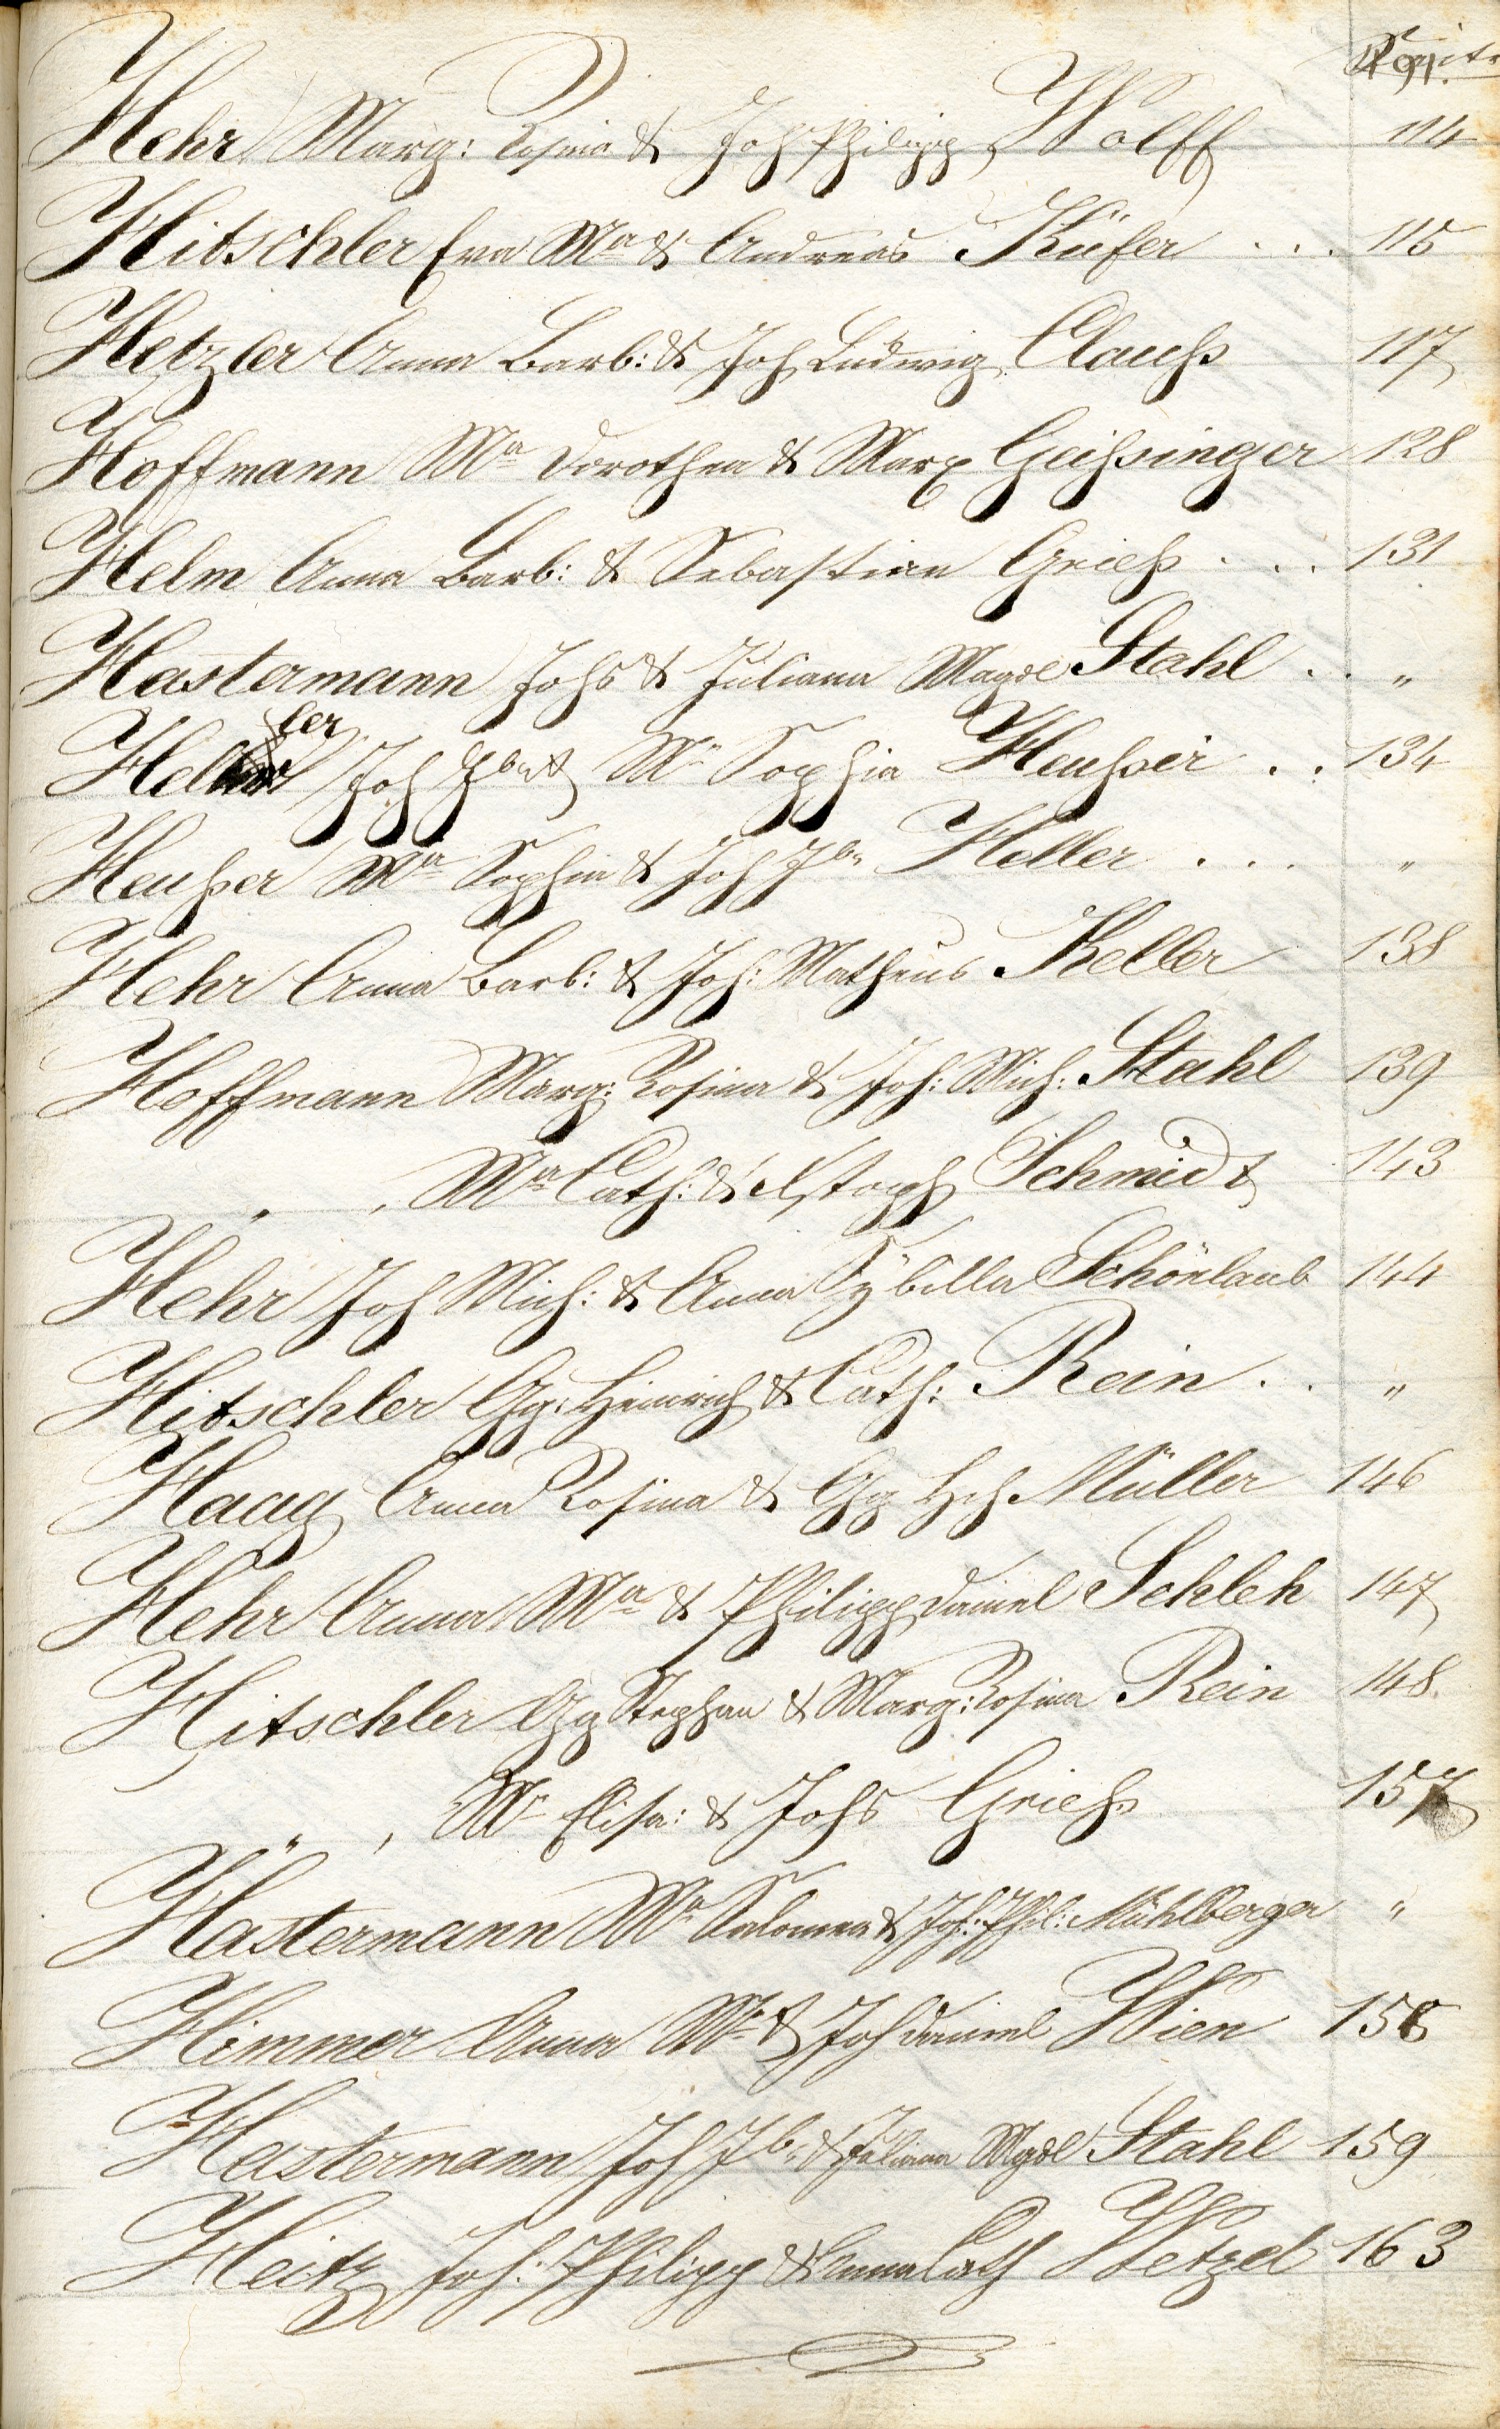 Hehr Marg: Rosina & Joh Philipp Wolff 114
Hitschler Eva Ma & Andreas Küfer . . . 115
Hetzler Anna Barb: & Joh Ludwig Clauß 117
Hoffmann Ma Dorothea & Marx Geißinger 128
Helm Anna Barb: & Sebastian Grieß . . . 131
Hastermann Johs & Juliana Magdl Stahl . . "
Heller Joh Jb & Ma Sophia Heußer . . 134
Heußer Ma Sophia & Joh Jb Heller . . . "
Hehr Anna Barb: & Joh: Matheus Keller 138
Hoffmann Marg: Rosina & Joh: Mich: Stahl 139
" , Ma Cath: & Chstoph Schmidt 143
Hehr Joh Mich: & Anna Sÿbilla Schönlaub 144
Hitschler Gg: Heinrich & Cath: Rein . . "
Haag Anna Rosina & Gg Hch Müller 146
Hehr Anna Ma & Philipp Daniel Schleh 147
Hitschler Gg Stephan & Marg: Rosina Rein 148
" , Ma Elisa: & Johs Grieß 157
Hastermann Ma Salomea & Joh: Phil: Mühlberger "
Himmer Anna Ma & Joh Daniel Wien 158
Hastermann Joh Jb & Juliana Mgdl Stahl 159
Heitz Joh: Philipp & Anna Cath Wetzel 163